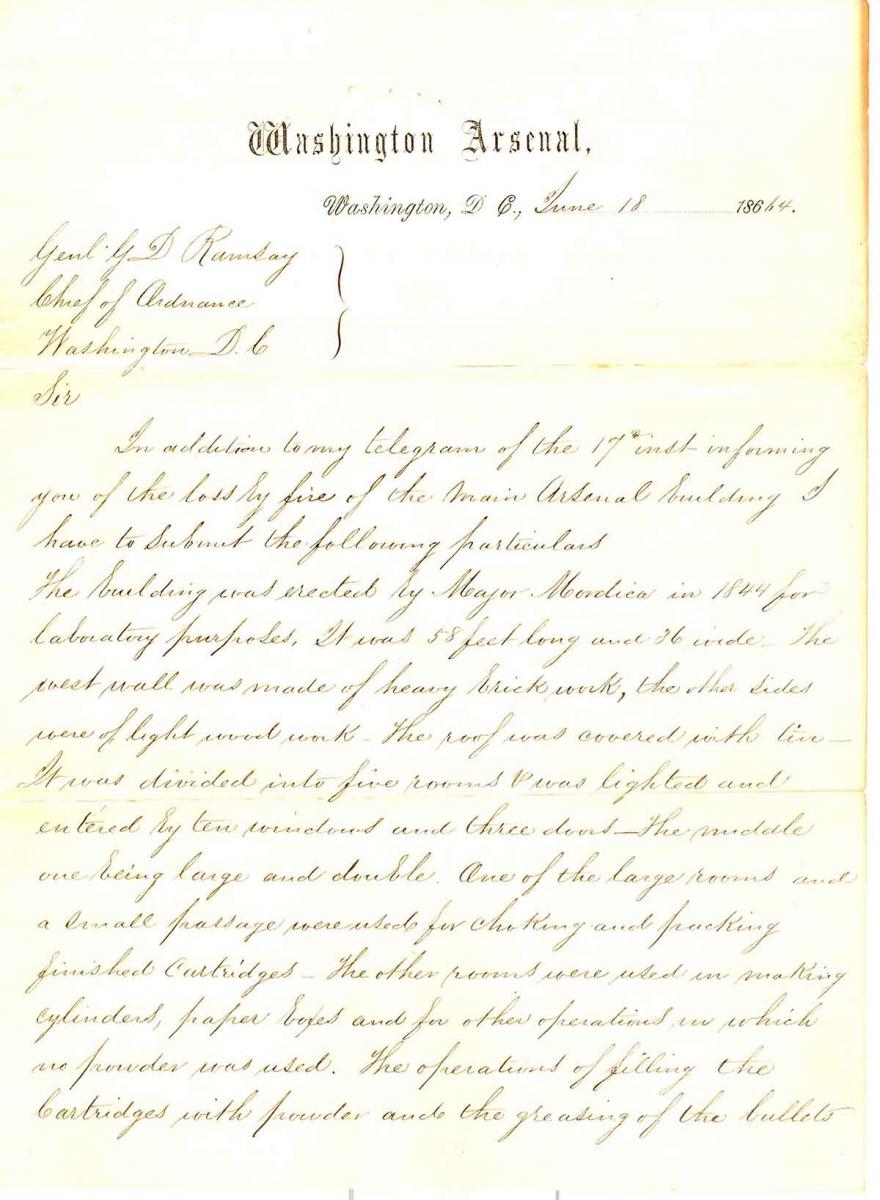 Washington Arsenal,
Washington, D C., June 18 1864.
Genl G D Ramsay
Chief of Ordnance
Washington D. C
Sir
In addition to my telegram of the 17th inst informing
you of the loss by fire of the main Arsenal building I
have to submit the following particulars
The building was erected by Major Mordica in 1844 for
laboratory purposes. It was 58 feet long and 36 wide - The
west wall was made of heavy brick work, the other sides
were of light wood work - The roof was covered with tin -
It was divided into five rooms & was lighted and
entered by ten windows and three doors - The middle
one being large and double. One of the large rooms and
a small passage were used for choking and packing
finished Cartridges - The other rooms were used in making
cylinders, paper boxes and for other operations in which
no powder was used. The operations of filling the
Cartridges with powder and the greasing of the bullets